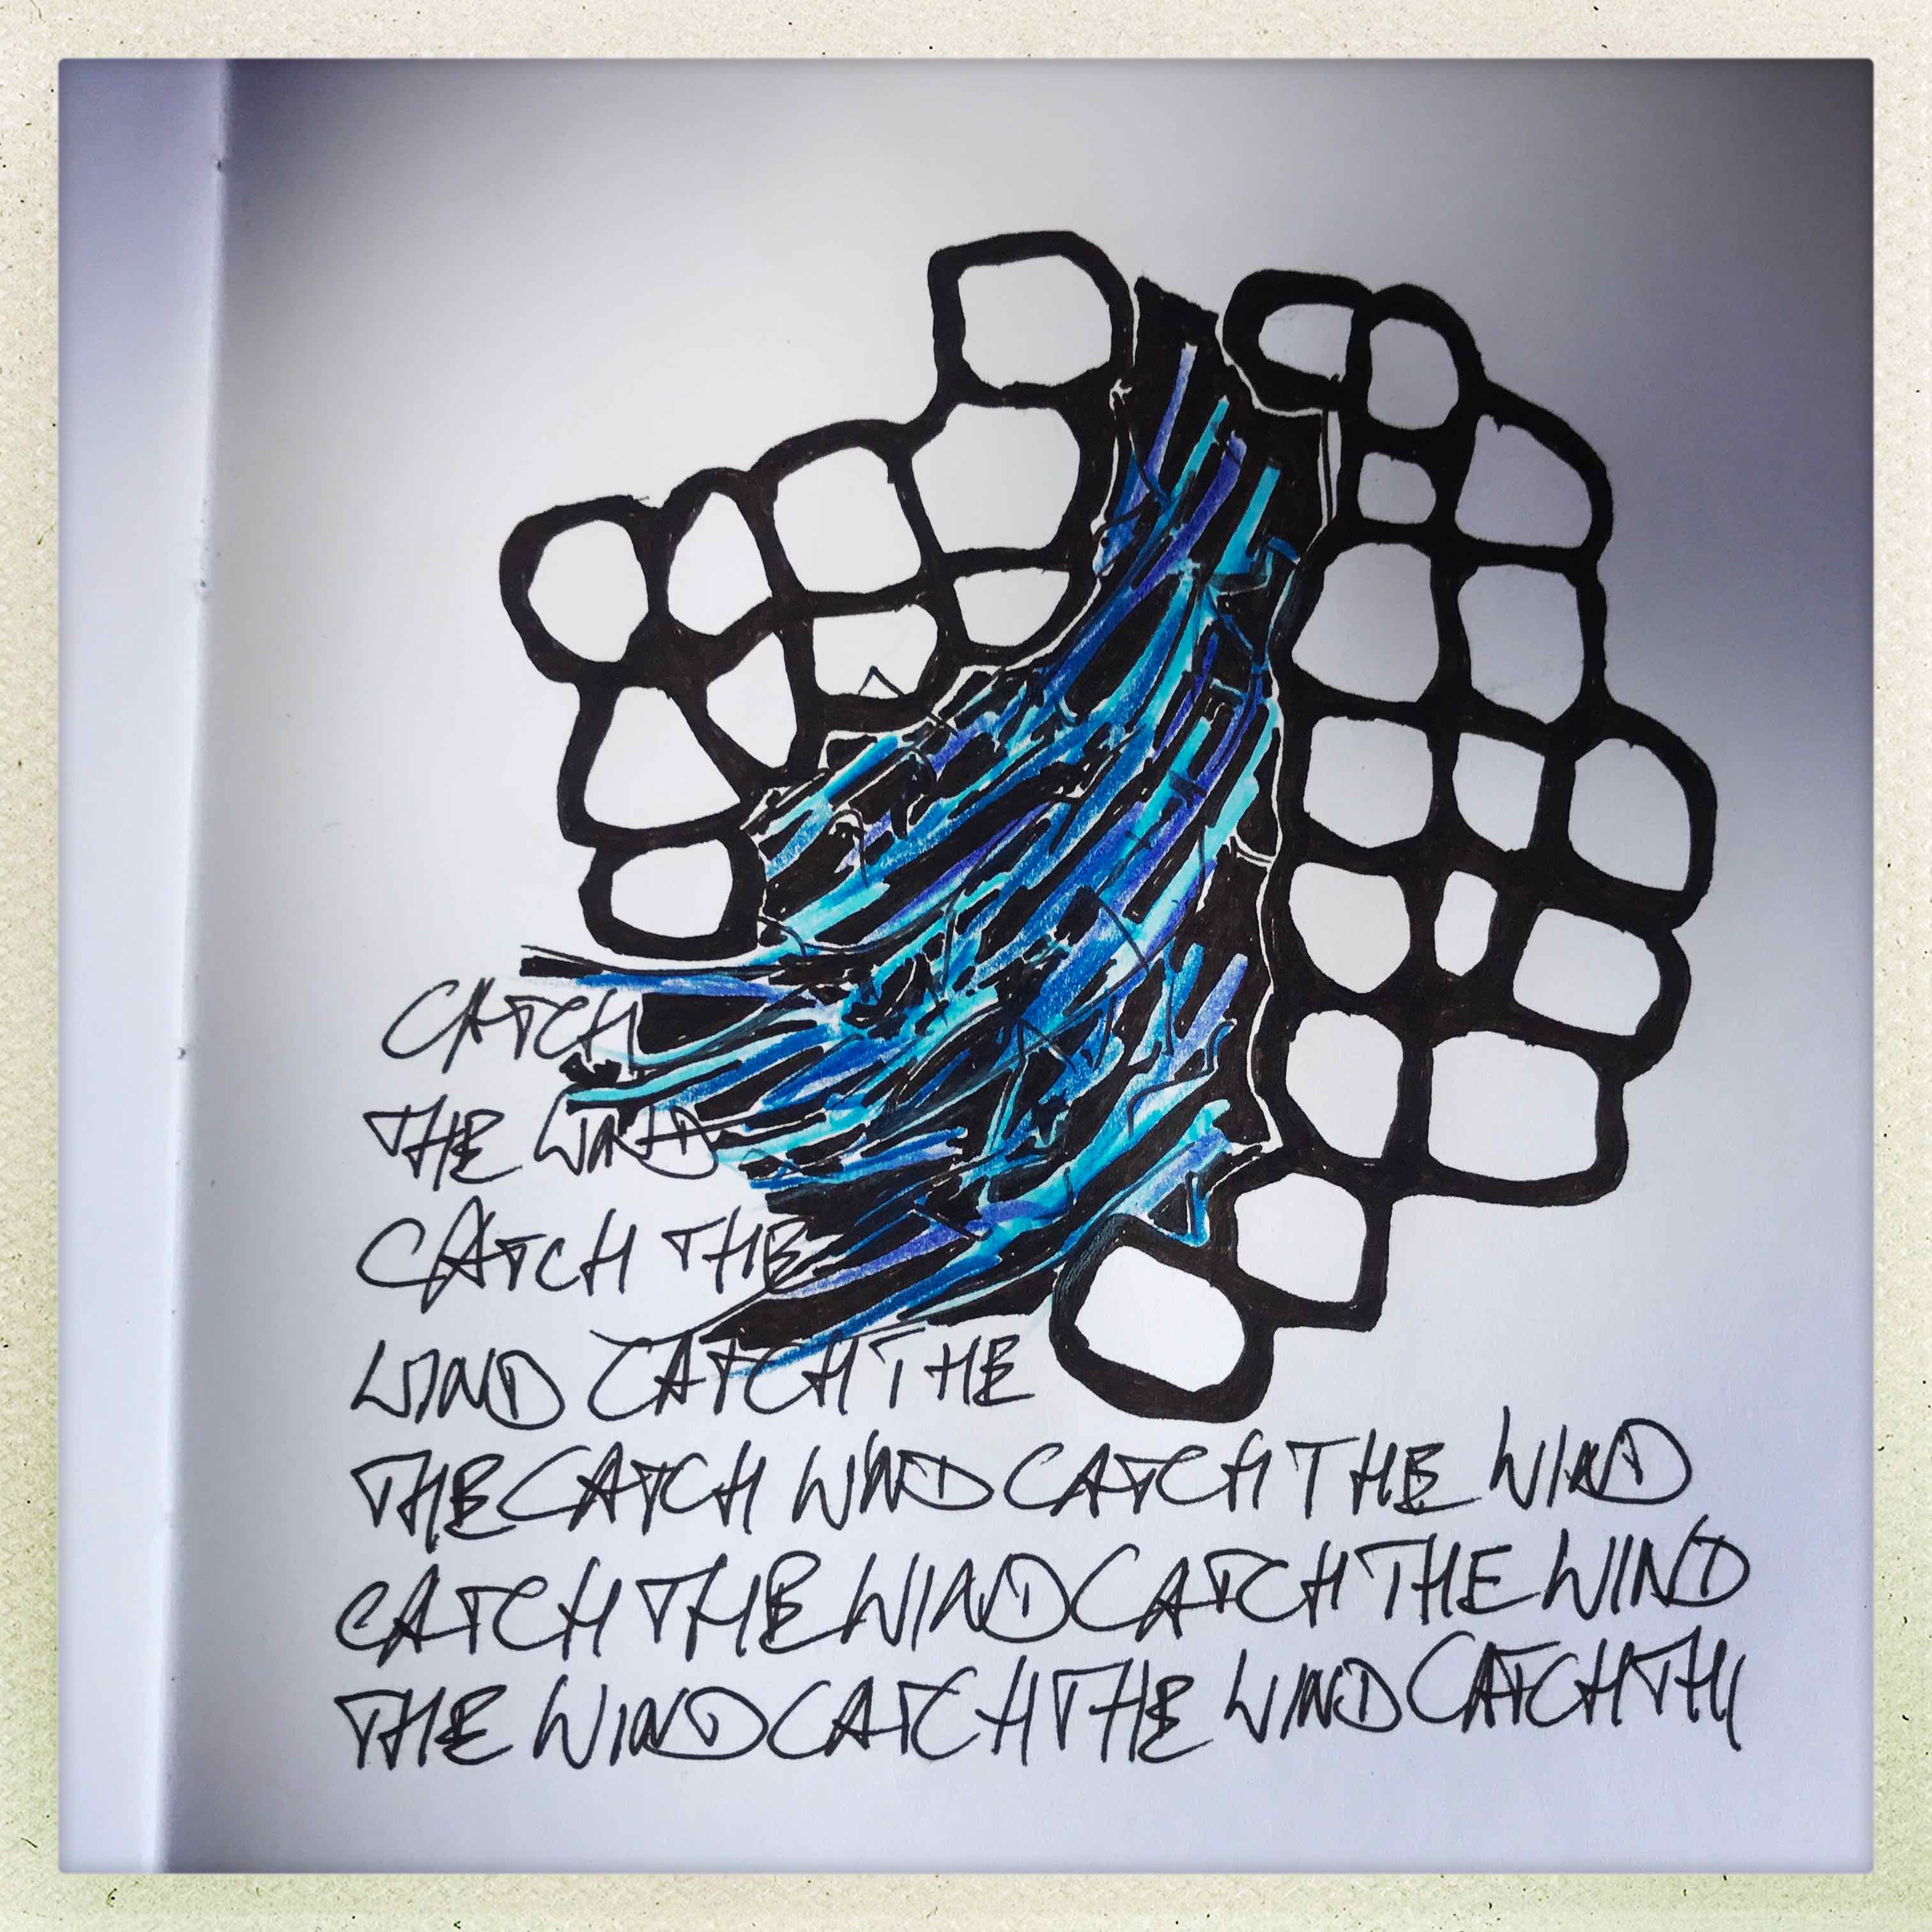 CATCH
THE WIND
CATCH THE
WIND CATCH THE
THE CATCH WIND CATCH THE WIND
CATCH THE WIND CATCH THE WIND
THE WIND CATCH THE WIND CATCH TH